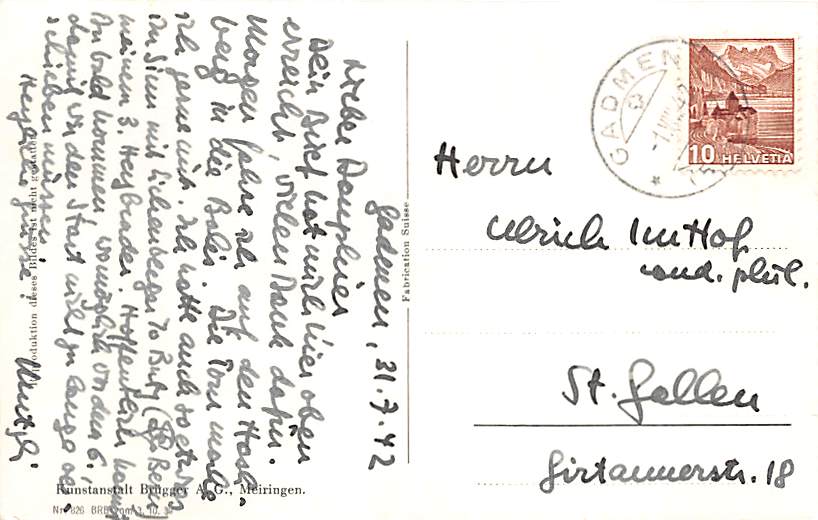 Gadmen, 31.7.42
Lieber Dauphier
Dein Brief hat mich hier oben
erreicht, vielen Dank dafür.
Morgen fahre ich auf den Hasli-
berg in die Balis. Die Tour mache
ich gerne mit. Ich hatte auch so etwas
im Sinn mit
meinem 3. Hoffentlich kannst
Du bald kommen, womöglich vor dem 6.,
damit wir den Start nicht zu lange ver-
schieben müssen.
Herzliche Grüsse!
Reproduktion dieses Bildes ist nicht gestattet
Kunstanstalt Brügger A. G., Meiringen.
Nr. 826 BRB vom 3. 10. 39
Fabrication Suisse
GADMEN
10 HELVETIA
Herrn
Ulrich ImHof
cand. phil.
St. Gallen
Girtannerstr. 18